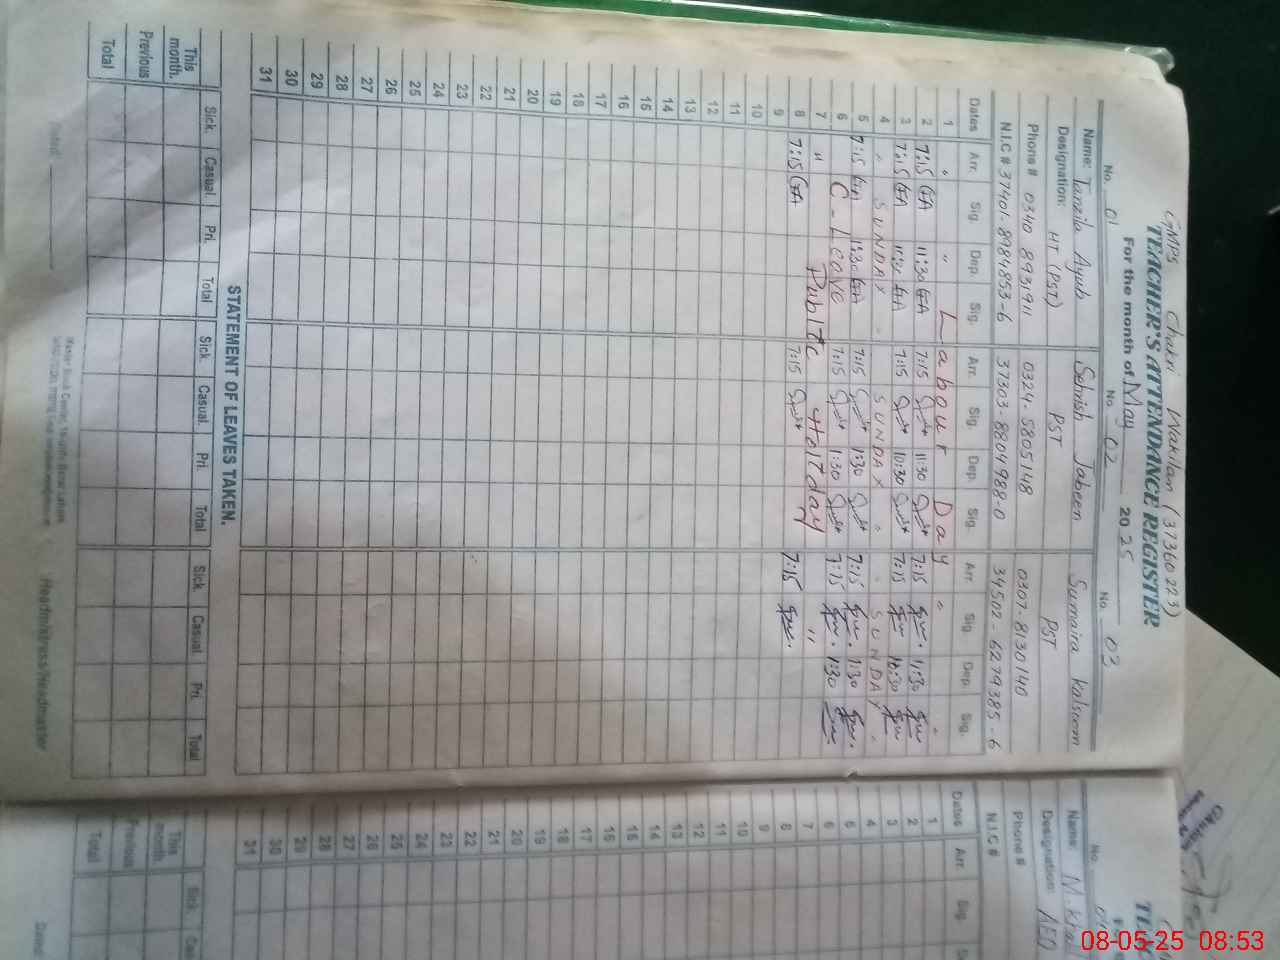 GMPS Chakri Wakilan (37360223)
TEACHER'S ATTENDANCE REGISTER
For the month of May 2025
No. 01 No. 02 No. 03
Name: Tanzila Ayub Sehrish Jabeen Sumaira Kalsoom
Designation: HT (PST) PST PST
Phone # 0340 8931911 0324-5805148 0307-8130140
N.I.C # 37401-8984853-6 37303-8804988-0 34502-6279385-6
Dates Arr. Sig. Dep. Sig. Arr. Sig. Dep. Sig. Arr. Sig. Dep. Sig.
1 " " Labour Day "
2 7:15 11:30 7:15 11:30 7:15 11:30
3 7:15 7:15 10:30 7:15
4 " SUNDAY " SUNDAY " " SUNDAY "
5 7:15 1:30 7:15 1:30 7:15 1:30
6 C-Leave 7:15 1:30 7:15 1:30
7 " Public Holiday "
8 7:15 7:15 7:15
9
10
11
12
13
14
15
16
17
18
19
20
21
22
23
24
25
26
27
28
29
30
31
STATEMENT OF LEAVES TAKEN.
Sick. Casual. Pri. Total Sick. Casual. Pri. Total Sick. Casual Pri. Total
This month.
Previous
Total
Dated:
Headmistress/Headmaster
No. 04
Name: M.
Designation: AEO
Phone #
N.I.C #
Dates Arr. Sig.
1
2
3
4
5
6
7
8
9
10
11
12
13
14
15
16
17
18
19
20
21
22
23
24
25
26
27
28
29
30
31
Sick.
This month.
Previous
Total
Dated
08-05-25 08:53